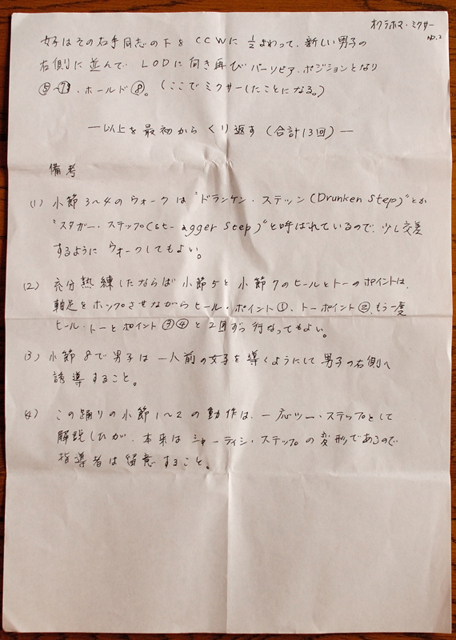 オクラホマ・ミクサー
NO.2
女子はその右手同志の下を CCWに ½まわって、新しい男子の
右側に並んで LODに向き再び バーソビア・ポジションとなり
・ホールド⑧。(ここで ミクサーしたことになる。)
―以上を最初から くり返す (合計13回)―
備考
(1) 小節3〜4のウォークは "ドランケン・ステップ (Drunken Step)" とか
"スタガー・ステップ(agger Step)" と呼ばれているので、少し交差
するように ウォークしてもよい。
(2) 充分熟練したならば 小節5と小節7のヒールとトーのポイントは、
軸足をホップさせながら ヒール・ポイント①、トーポイント②、もう一度
ヒール・トーとポイント③④と2回ずつ行なってもよい。
(3) 小節8で男子は一人前の女子を導くようにして 男子の右側へ
誘導すること。
(4) この踊りの小節1〜2の動作は、一応ツー・ステップとして
解説したが、本来は シャーティシ・ステップの変形であるので
指導者は留意すること。